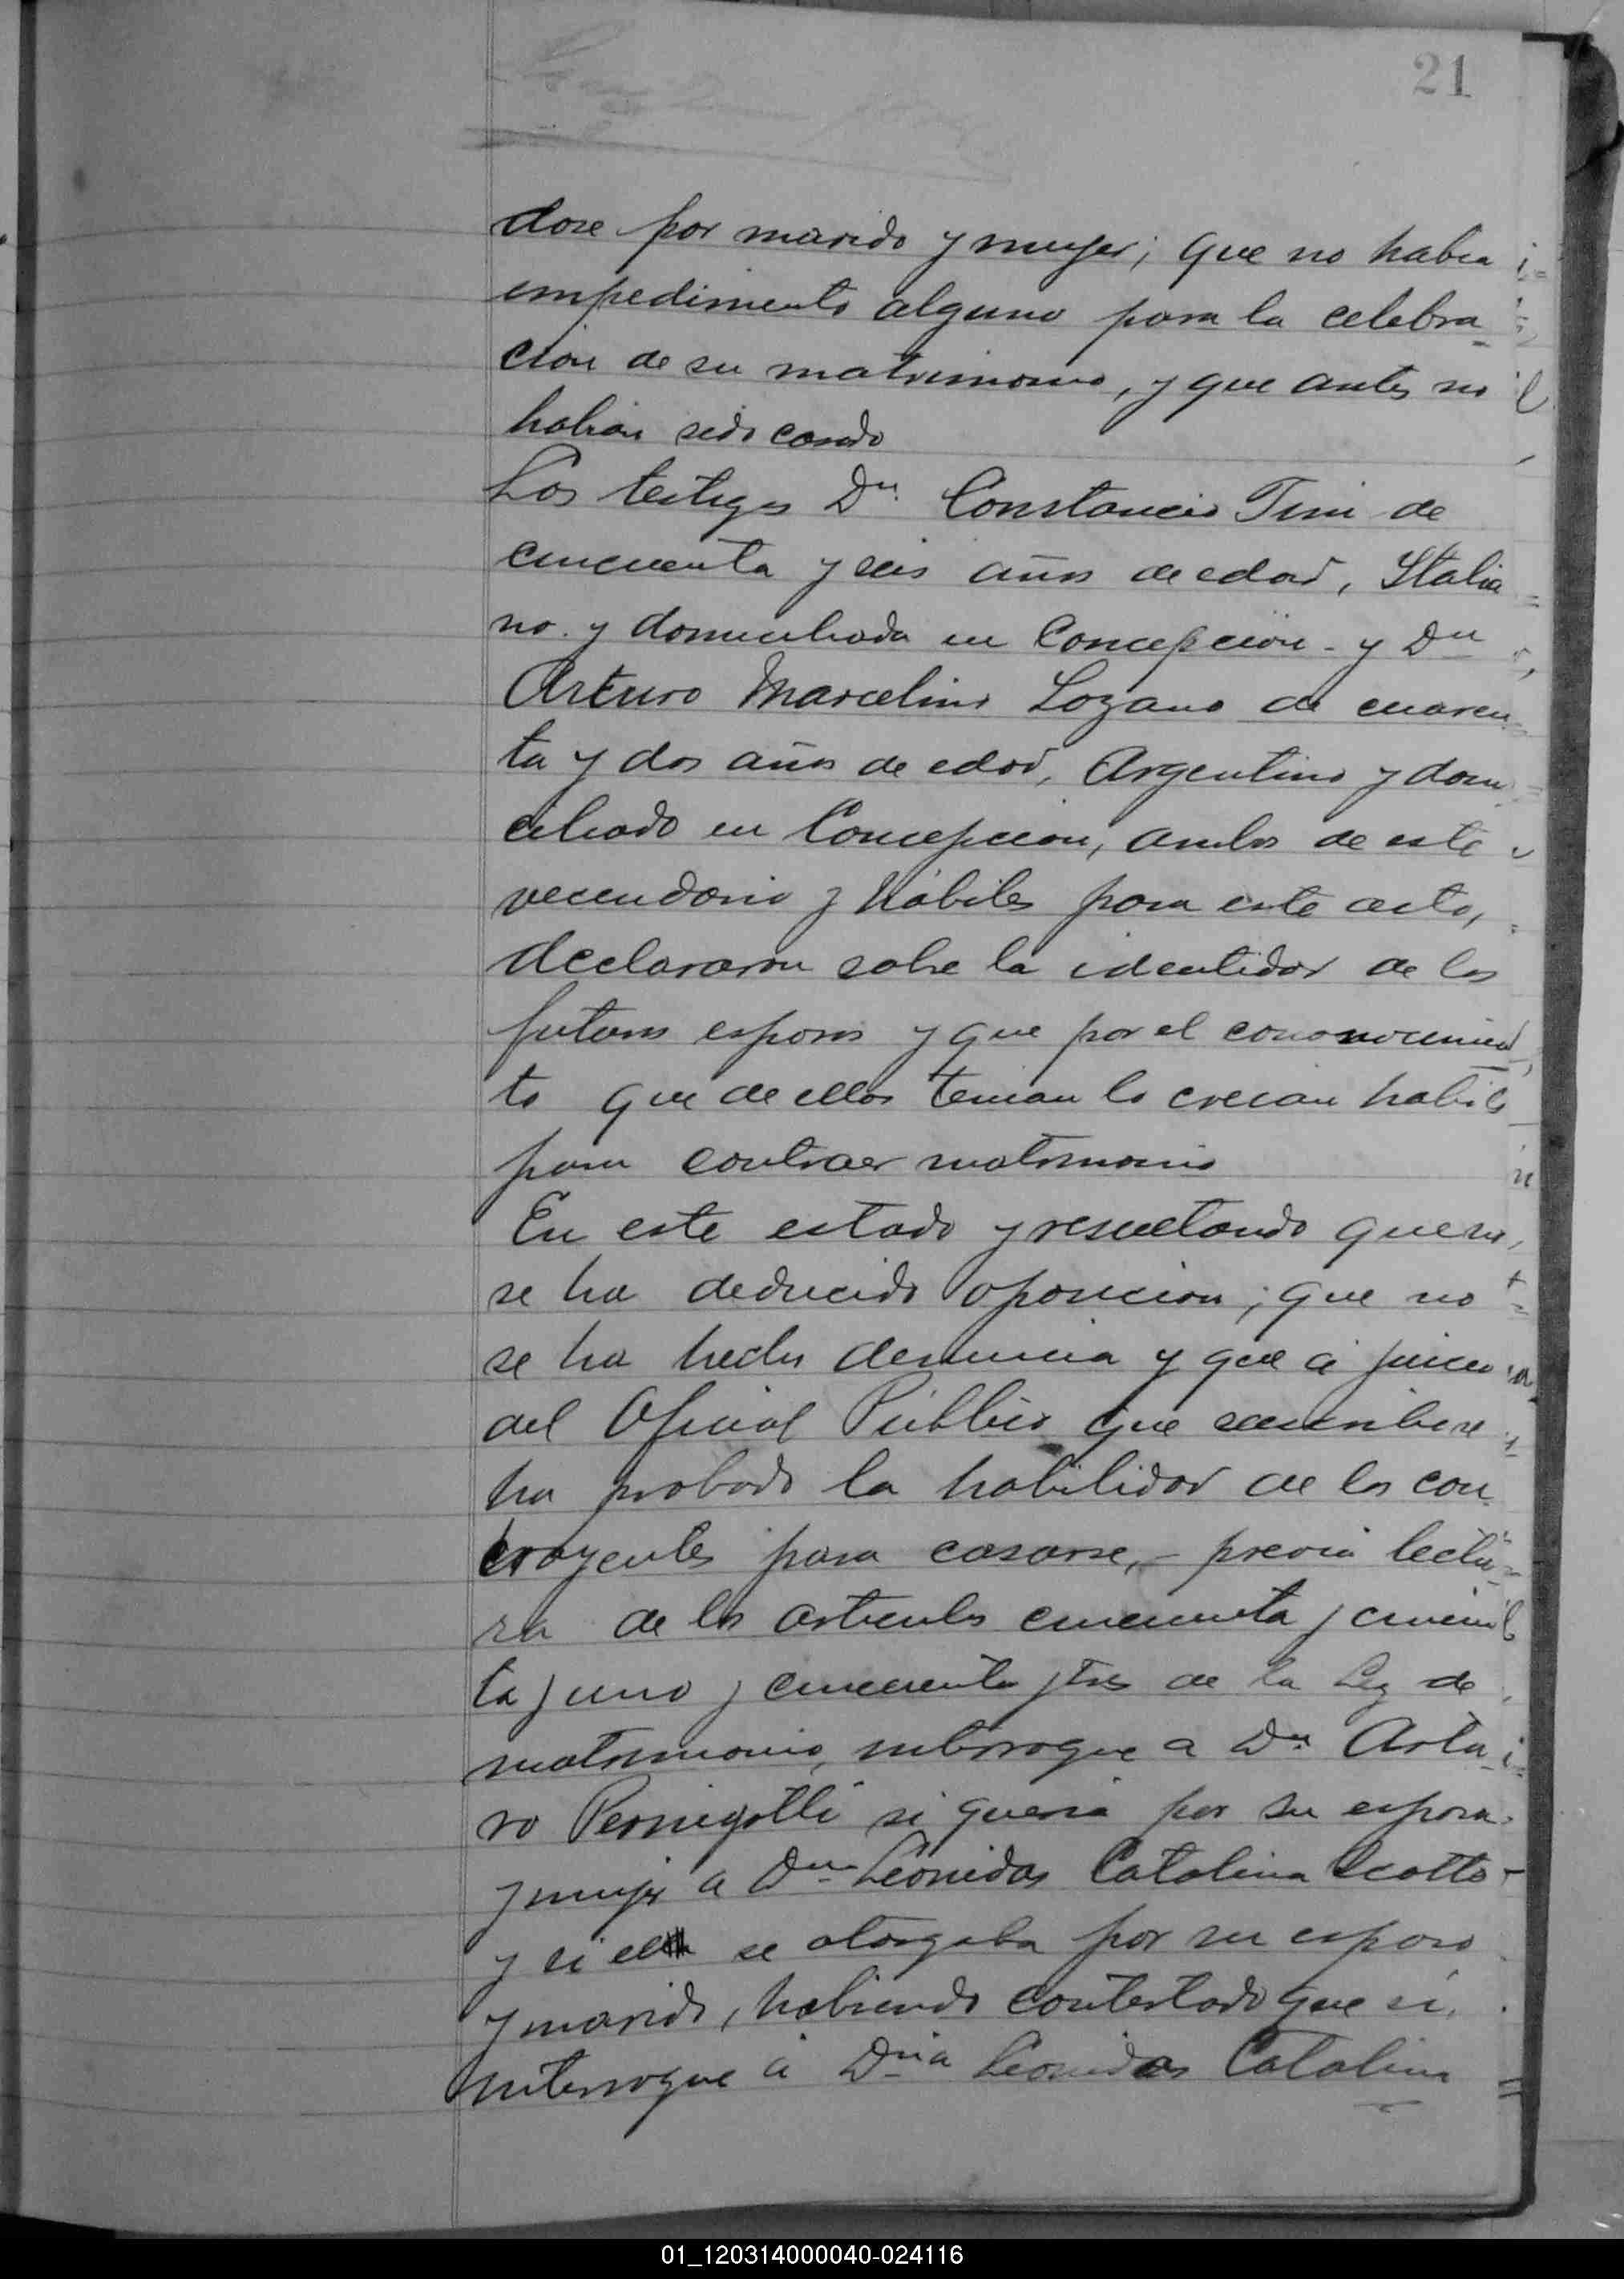 21
dose por marido y mujer; que no habia
impedimento alguno para la celebra
cion de su matrimonio, y que antes no
habian sido casado
Los testigos Dn. Constancio Tini de
cincuenta y seis años de edad, Italia
no. y domiciliado en Concepcion - y Dn
Arturo Marcelino Lozano de cuaren
ta y dos años de edad, Argentino y domi
ciliado en Concepcion, ambos de este
vecindario y hábiles para este acto,
declararon sobre la identidad de los
futuros esposos y que por el cononocimien
to que de ellos tenian lo creian habiles
para contraer matrimonio
En este estado y resultando que no
se ha deducido oposicion; que no
se ha hecho denuncia y que á juicio
del Oficial Público que suscribe se
ha probado la habilidad de los con
trayentes para casarse,- previa lectu
ra de los articulos cincuenta y cincuen
ta y uno y cincuenta y tres de la Ley de
matrimonio, interrogue a Dn Artu
ro Pernigotti si queria por su esposa
y mujer a Dna Leonidas Catalina Scotto
y si el se otorgaba por su esposo
y marido, habiendo contestado que si,
interrogue á Dña Leonidas Catalina
01_120314000040-024116